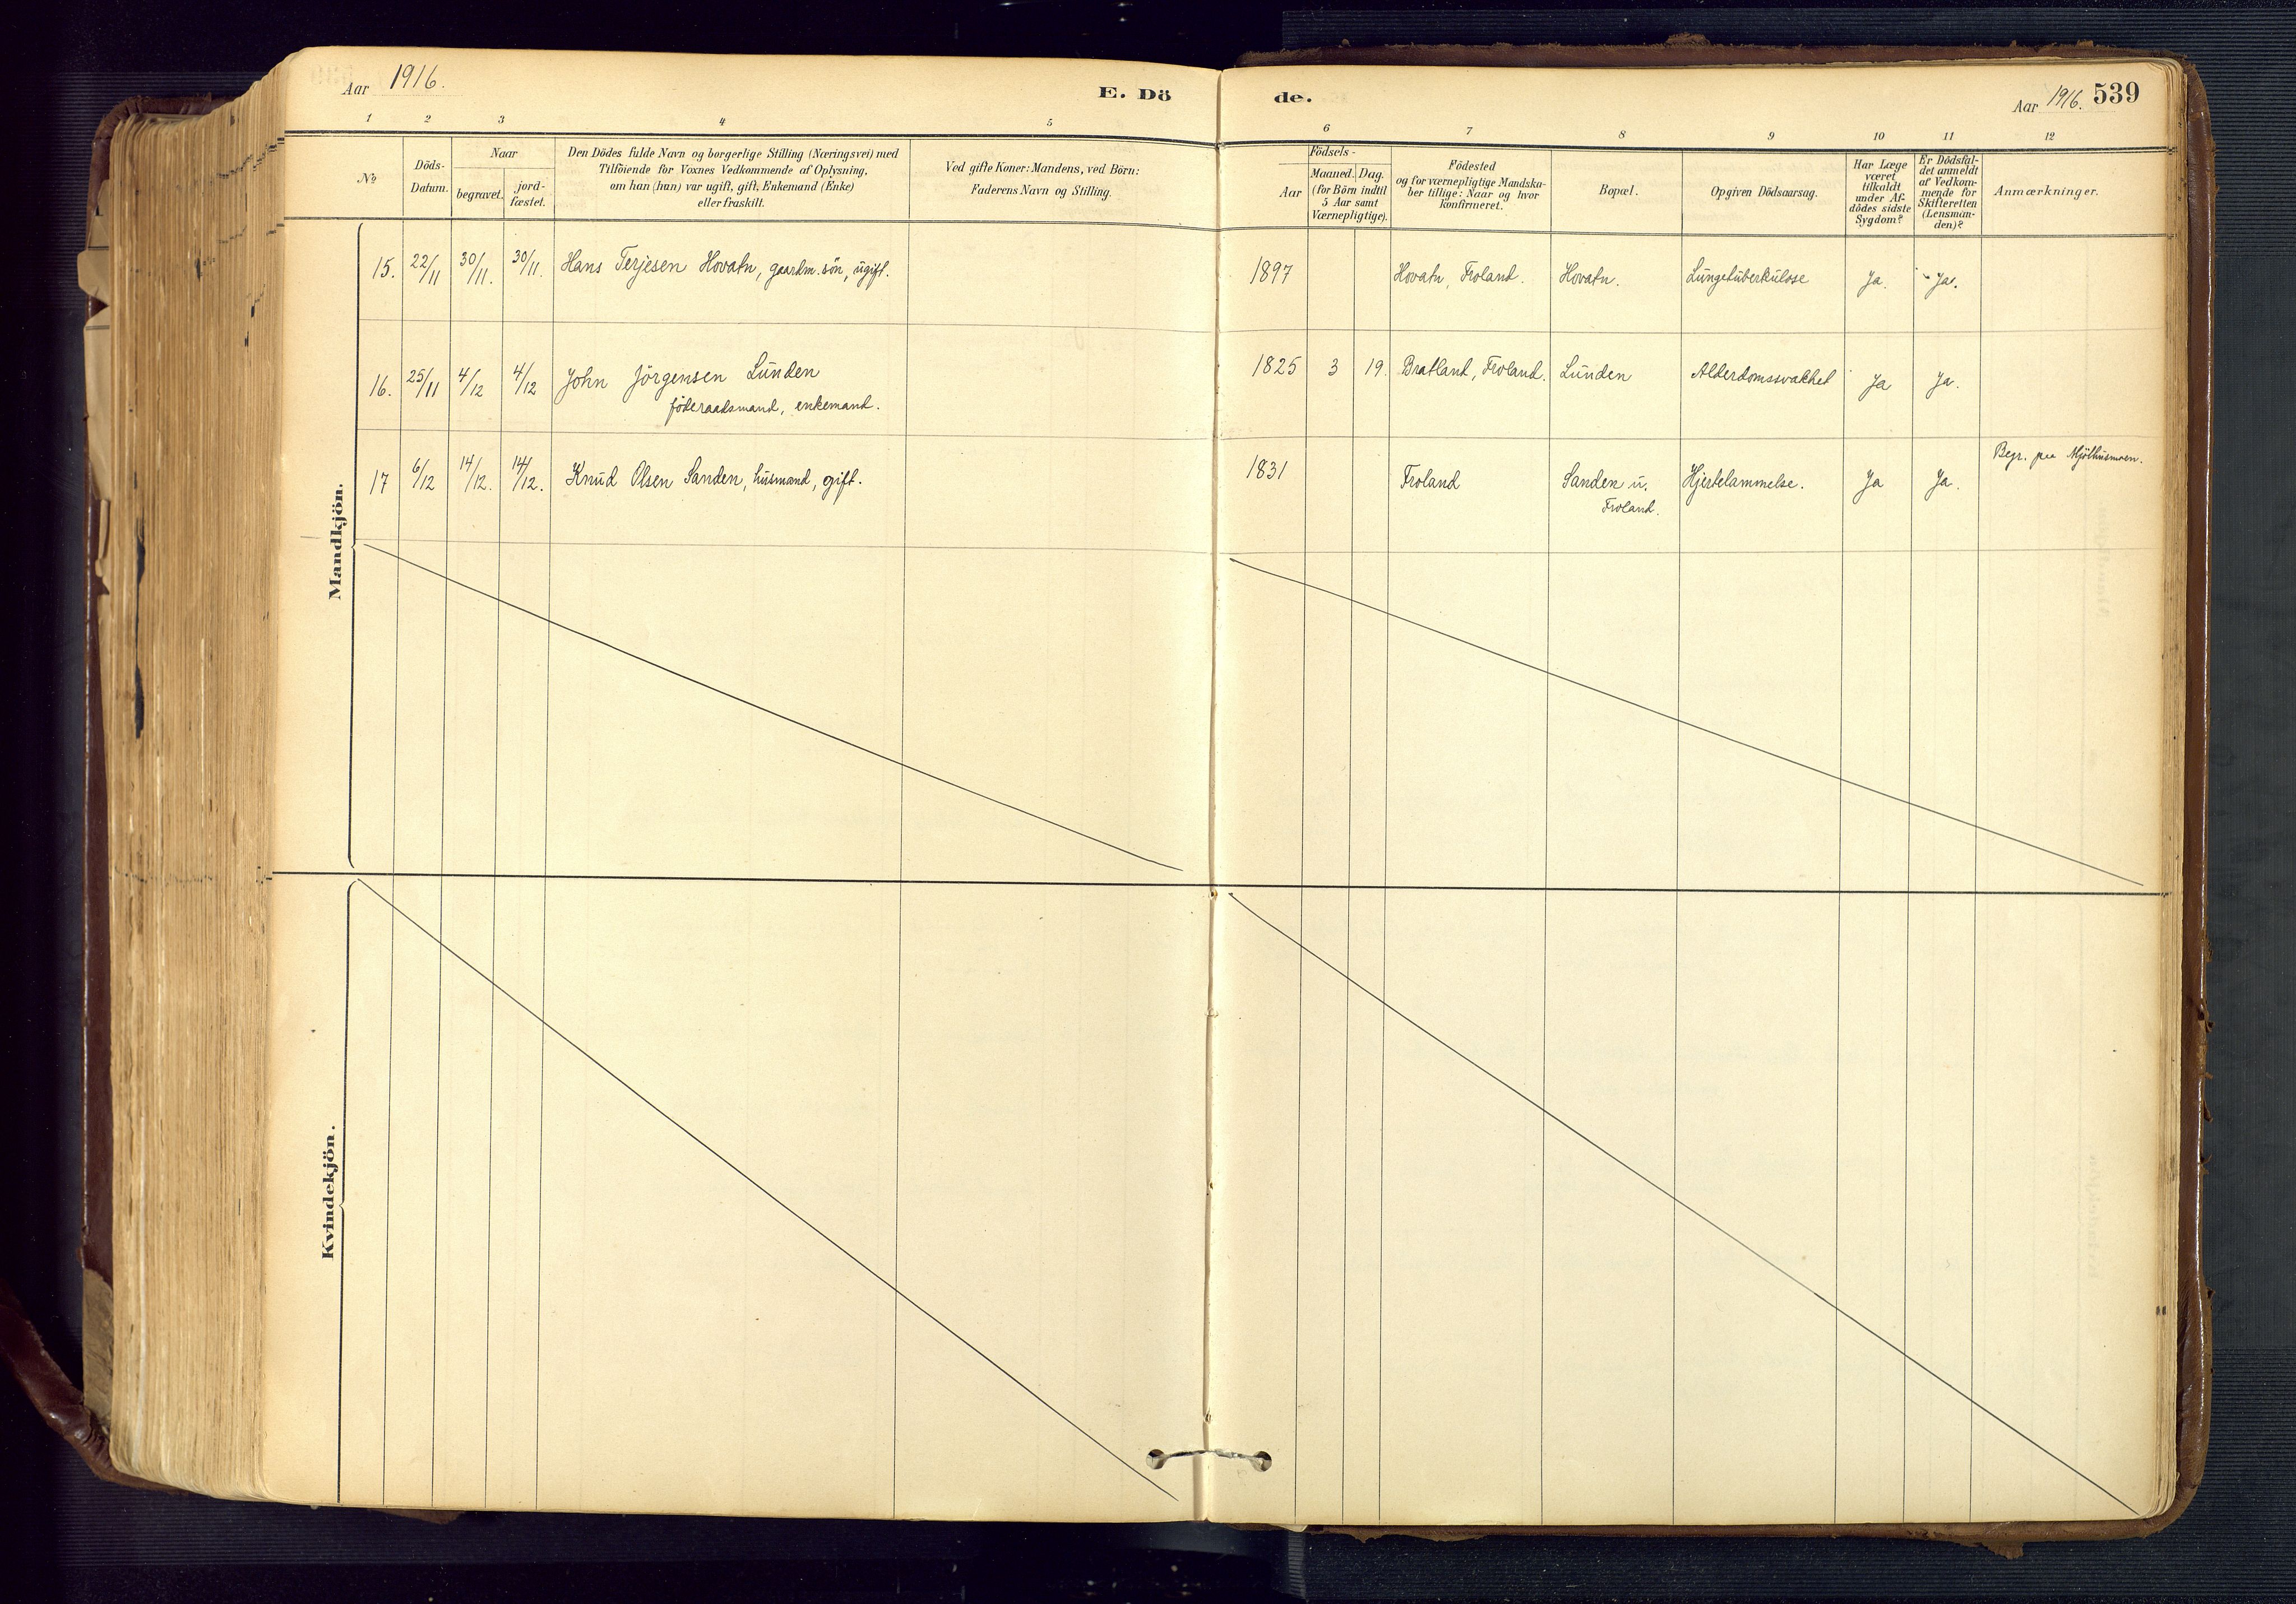 Aar 1916.
E. Dö
de.
Aar 1916. 539
1 2 3 4 5 6 7 8 9 10 11 12
No
Döds-
Datum.
Naar
begravet.
jord-
fæstet.
Den Dödes fulde Navn og borgerlige Stilling (Næringsvei) med
Tilföiende for Voxnes Vedkommende af Oplysning,
om han (hun) var ugift, gift, Enkemand (Enke)
eller fraskilt.
Ved gifte Koner: Mandens, ved Börn:
Faderens Navn og Stilling.
Födsels-
Aar
Maaned. Dag.
(for Börn indtil
5 Aar samt
Værnepligtige).
Födested
og for værnepligtige Mandska-
ber tillige: Naar og hvor
konfirmeret.
Bopæl.
Opgiven Dödsaarsag.
Har Læge
været
tilkaldt
under Af-
dödes sidste
Sygdom?
Er Dödsfal-
det anmeldt
af Vedkom-
mende for
Skifteretten
(Lensman-
den)?
Anmærkninger.
Mandkjön.
15. 22/11 30/11. 30/11. Hans Terjesen Hovatn, gaardm. sön, ugift. 1897 Hovatn, Froland. Hovatn. Lungetuberkulose Ja. Ja.
16. 25/11 4/12 4/12 John Jörgensen Lunden 1825 3 19. Bratland, Froland. Lunden Alderdomssvakhet Ja Ja.
föderaadsmand, enkemand.
17 6/12 14/12. 14/12. Knud Olsen Sanden, husmand, gift. 1831 Froland Sanden u. Hjertelammelse. Ja Ja. Begr. paa Mjölhusmoen.
Froland.
Kvindekjön.